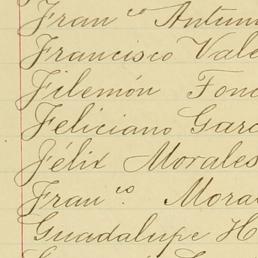 Fran.co Antun
Francisco Vale
Filemón Fon
Feliciano Garc
Félix Morales
Fran.co Mora
Guadalupe H